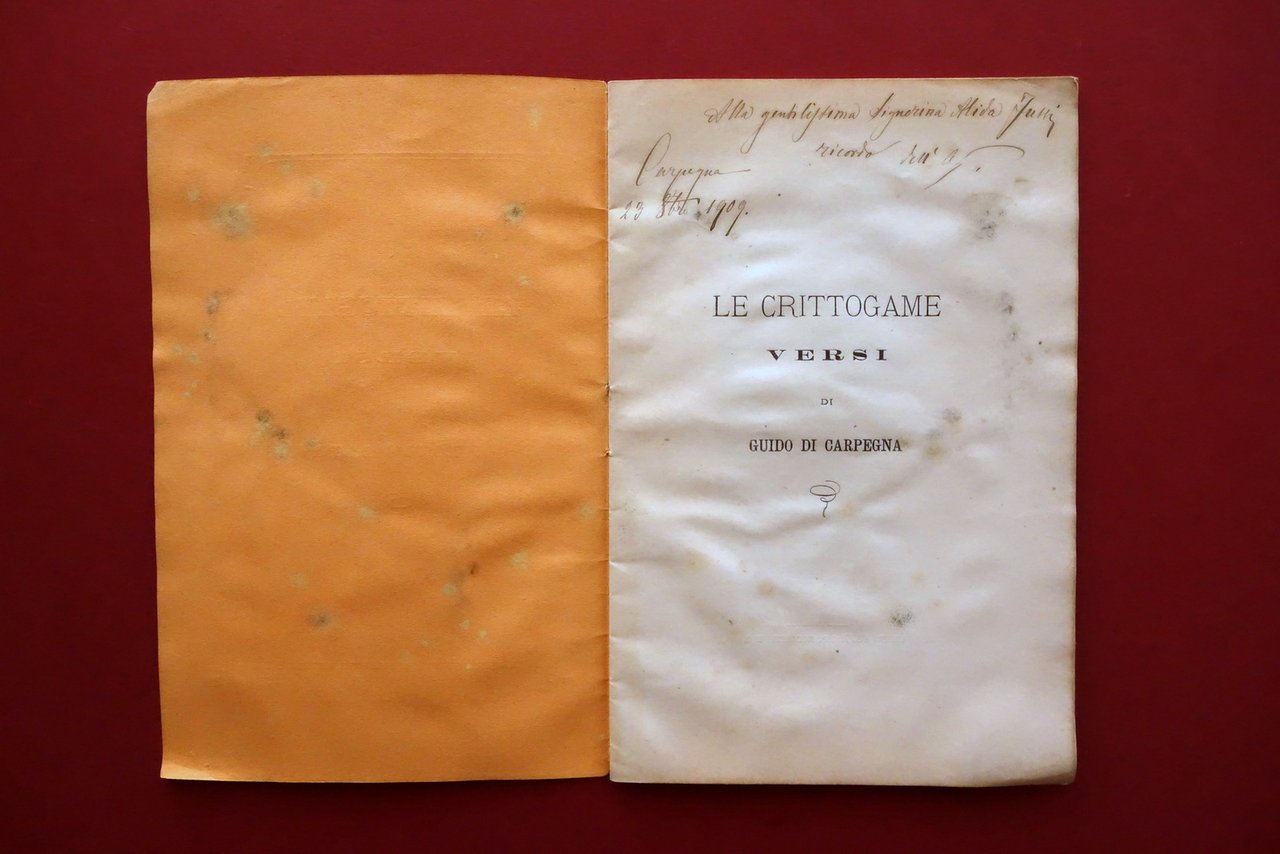 Alla gentilissima Signorina Alida
ricordo dell' A.
Carpegna
23 1909.
LE CRITTOGAME
VERSI
DI
GUIDO DI CARPEGNA